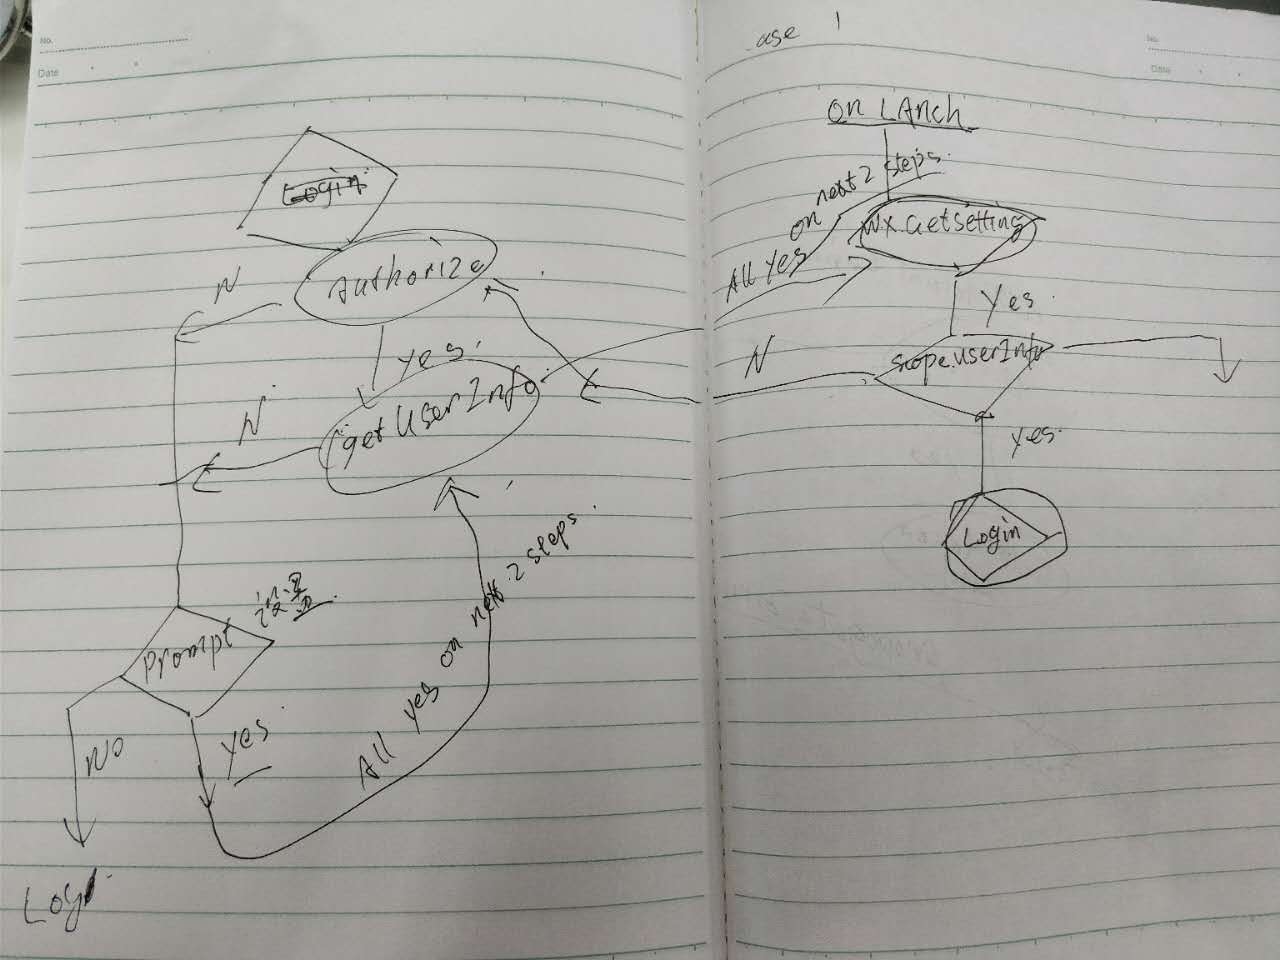 No.
Date
Login
N
Authorize
yes.
N
getUserInfo
Prompt
设置
No
yes
All yes on next 2 steps.
Log
ase 1
No.
Date
On LAnch
All Yes on next 2 steps.
Wx.Getsetting
Yes
N
Scope.UserInfo
yes.
Login